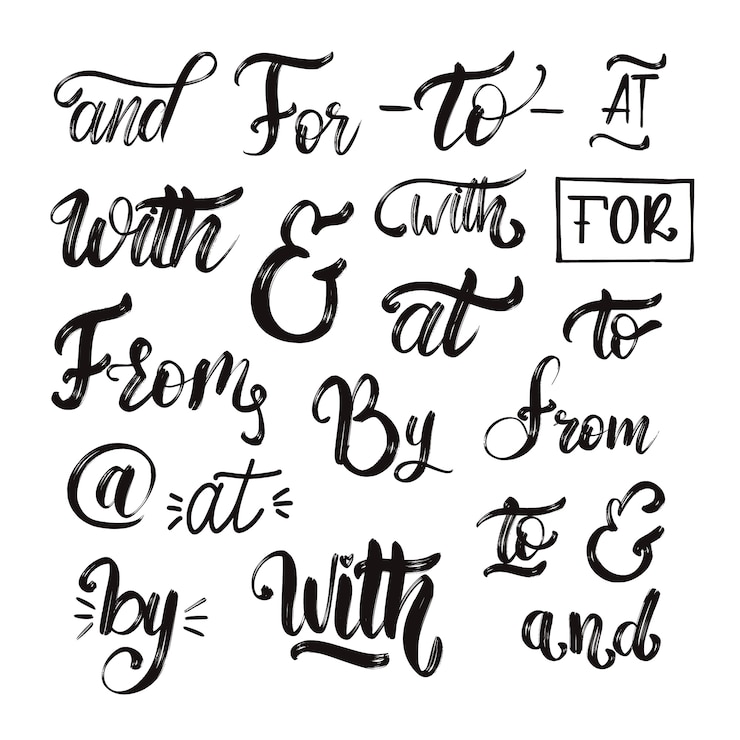 and For - to - AT
With & with FOR
at to
From By from
@ at to &
by With and